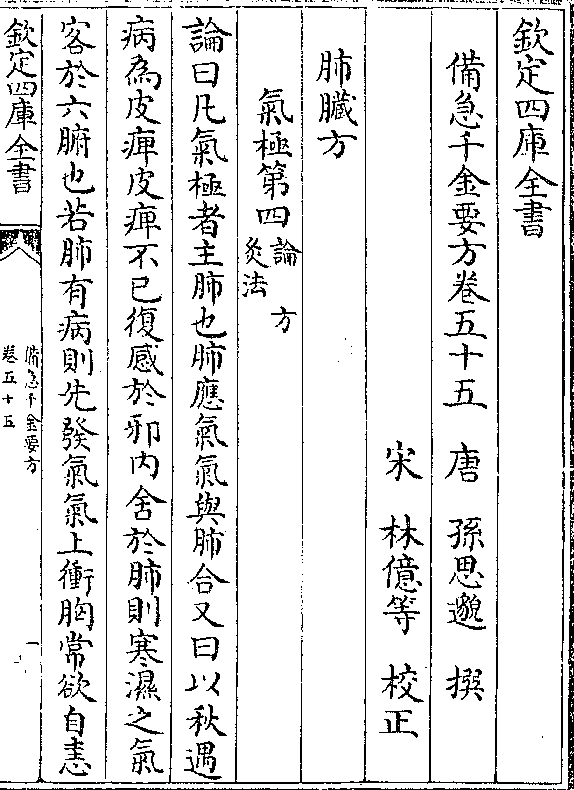 欽定四庫全書
備急千金要方卷五十五　唐　孫思邈　撰
宋　林億等　校正
肺臟方
氣極第四論　方
灸法
論曰凡氣極者主肺也肺應氣氣與肺合又曰以秋遇
病為皮痺皮痺不已復感於邪内舍於肺則寒濕之氣
客於六腑也若肺有病則先發氣氣上衝胸常欲自恚
欽定四庫全書
備急千金要方
卷五十五
一